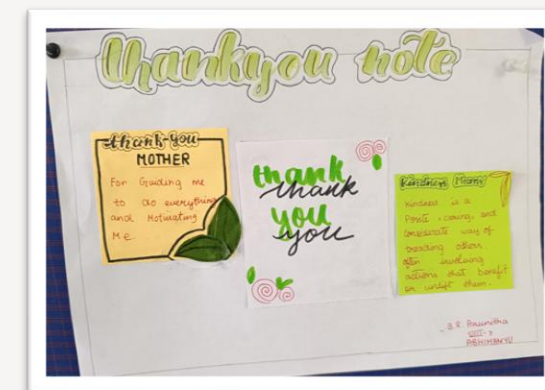 thankyou note
thank-you
MOTHER
For Guiding me
to do everything
and Motivating
Me.
thank
thank
you
you
Kindness Means
Kindness is a
Polite, caring, and
Considerate way of
treading others
often involving
actions that benefit
or uplift them.
VIII-
ABHIMANYU